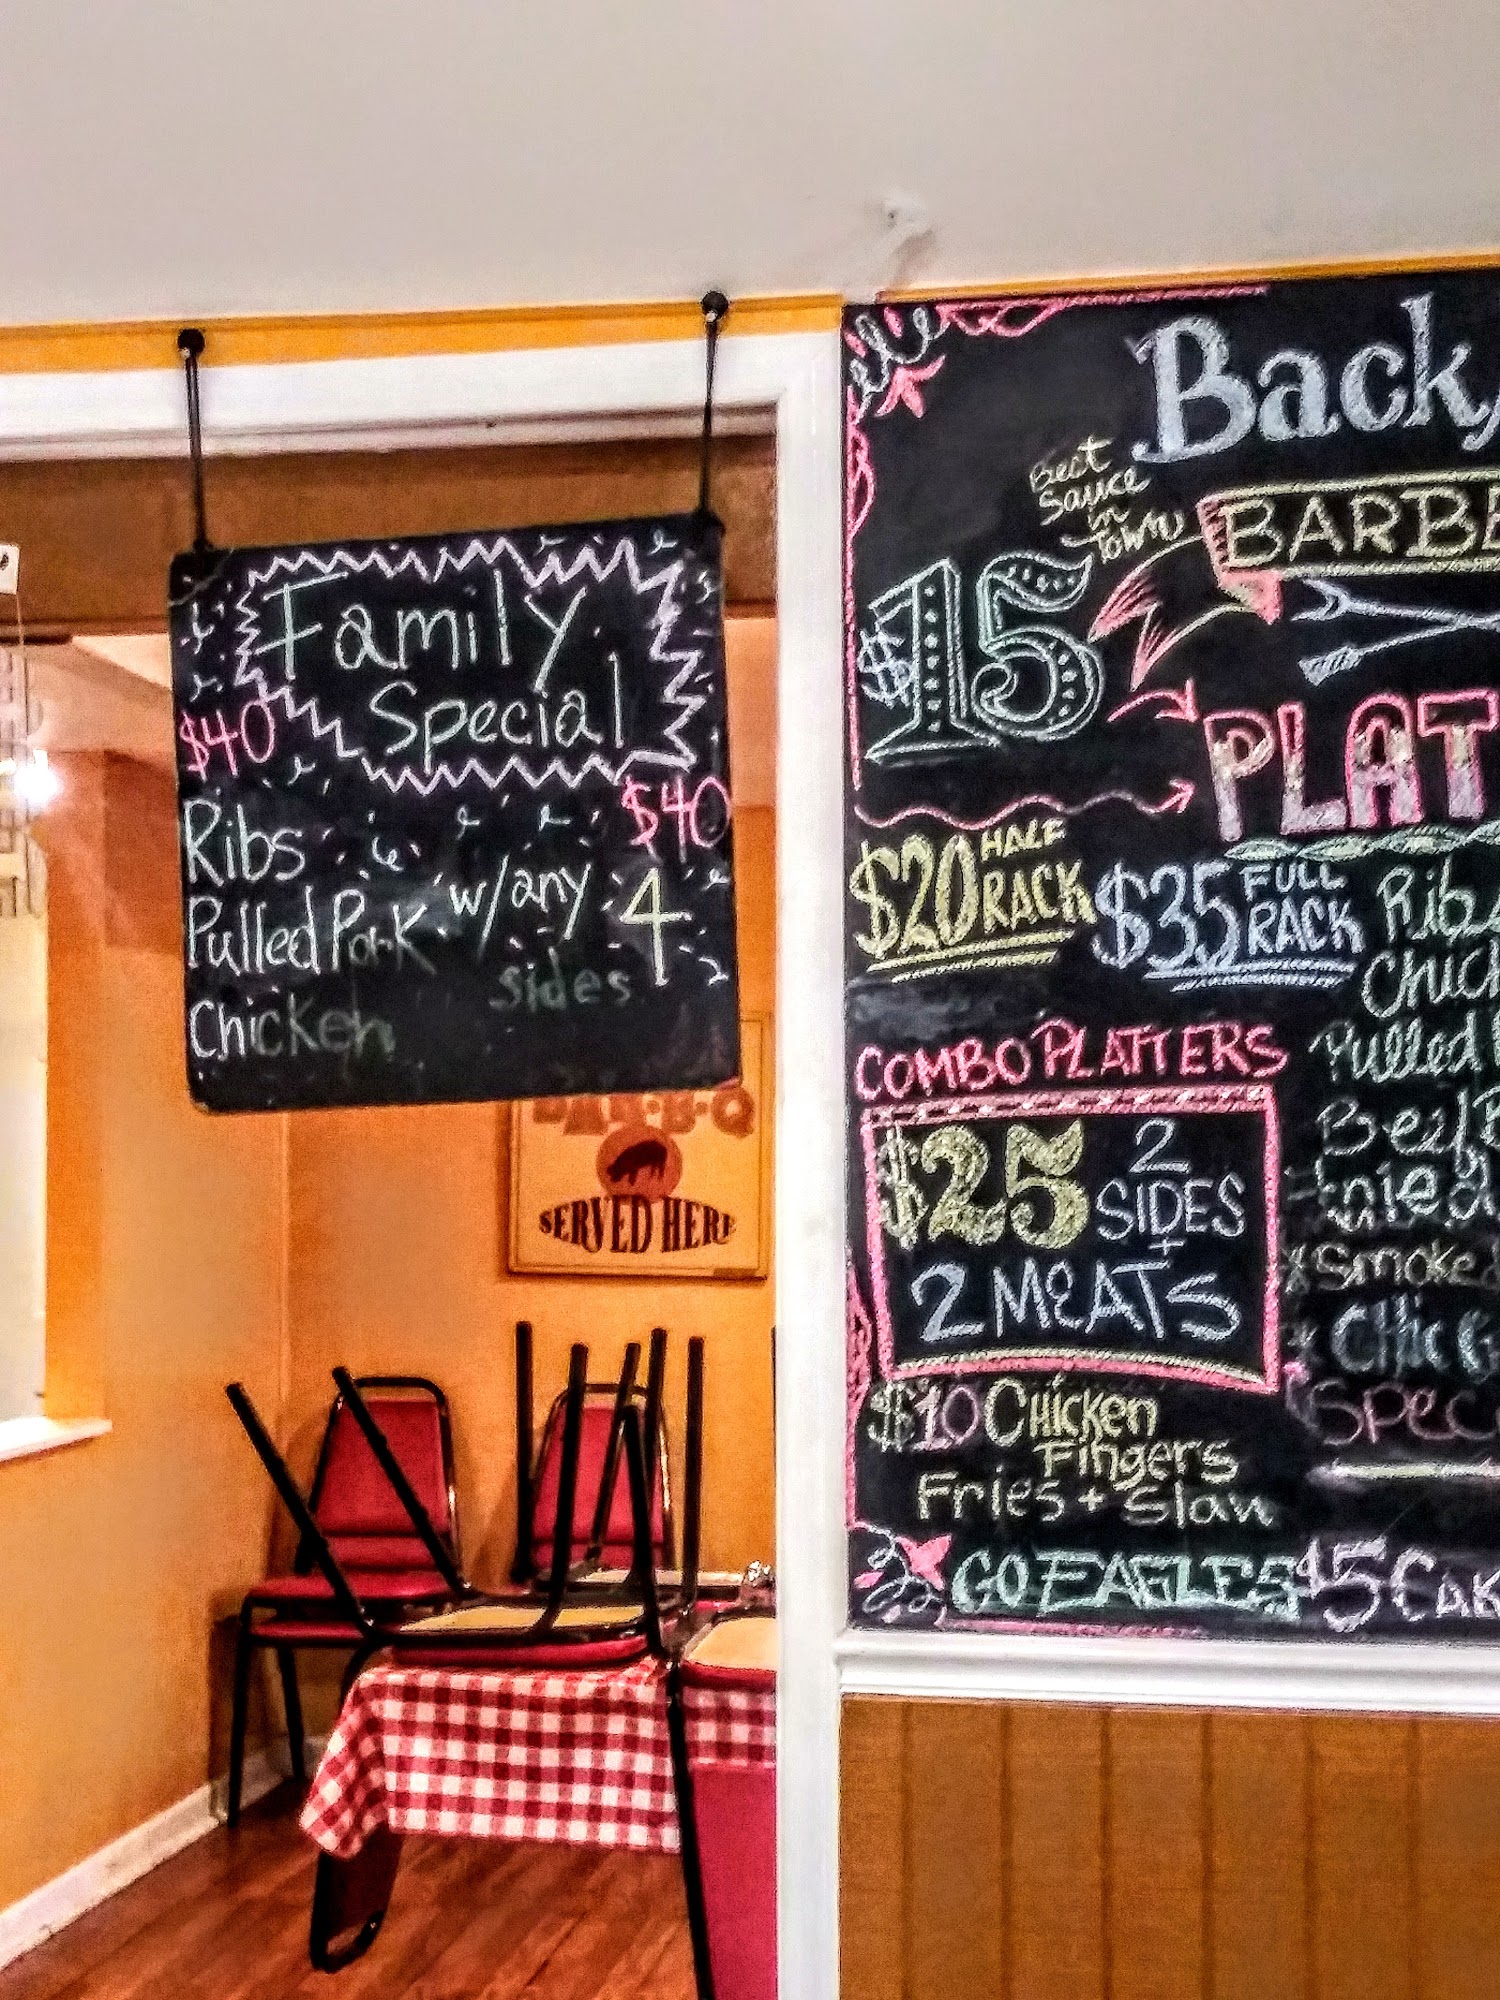 Family
Special
$40
$40
Ribs
Pulled Pork
Chicken
w/any 4
sides
BAR-B-Q
SERVED HERE
Back
Best
Sauce
in
Town
BARBE
$15
PLAT
$20 HALF
RACK
$35 FULL
RACK
Rib
Chic
Pulled
Beef
Smoke
Chic
Spec
COMBO PLATTERS
$25 2
SIDES
+
2 MEATS
$10 Chicken
Fingers
Fries + Slaw
GO EAGLES
$5 Cak